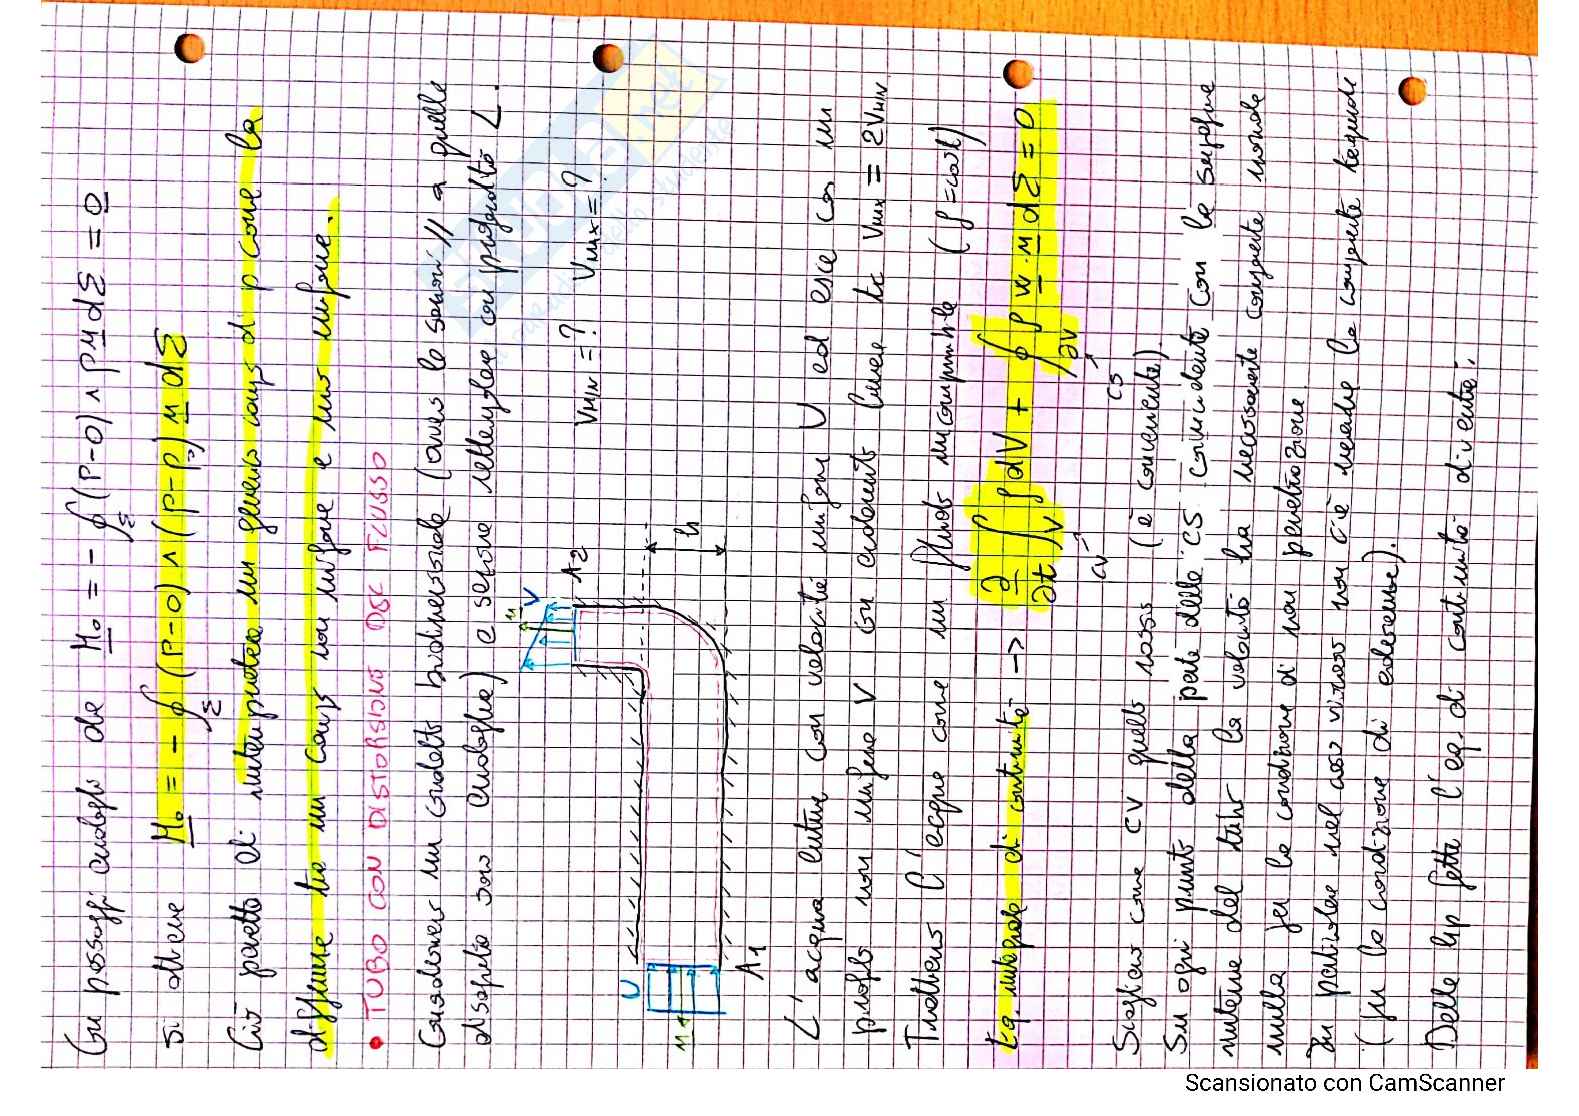 Con passaggi analoghi da M₀ = - ∮_Σ (P-O) ∧ p n dΣ = 0
si ottiene M₀ = - ∮_Σ (P-O) ∧ (p-p₀) n dΣ
Ciò permette di interpretare un generico campo di p come la
differenza tra un campo non uniforme e uno uniforme.
• TUBO CON DISTORSIONE DEL FLUSSO
Consideriamo un condotto bidimensionale (ovvero le sezioni // a quella
disegnata sono analoghe) a sezione rettangolare con profondità L.
V_MIN = ? V_MAX = ?
U
n
A1
V
n
A2
h
L'acqua entra con velocità uniforme U ed esce con un
profilo non uniforme V con andamento lineare tc V_MAX = 2V_MIN
Trattiamo l'acqua come un fluido incomprimibile (ρ = cost)
Eq. integrale di continuità → ∂/∂t ∫_V ρ dV + ∮_∂V ρ v · n dΣ = 0
CV CS
Scelgo come CV quello rosso (è conveniente).
In ogni punto della parte della CS coincidente con la superficie
interna del tubo la velocità ha necessariamente componente normale
nulla per la condizione di non penetrazione.
In particolare nel caso viscoso non c'è neanche la componente
(per la condizione di aderenza).
Delle ip fatte l'eq. di continuità diventa:
Scansionato con CamScanner